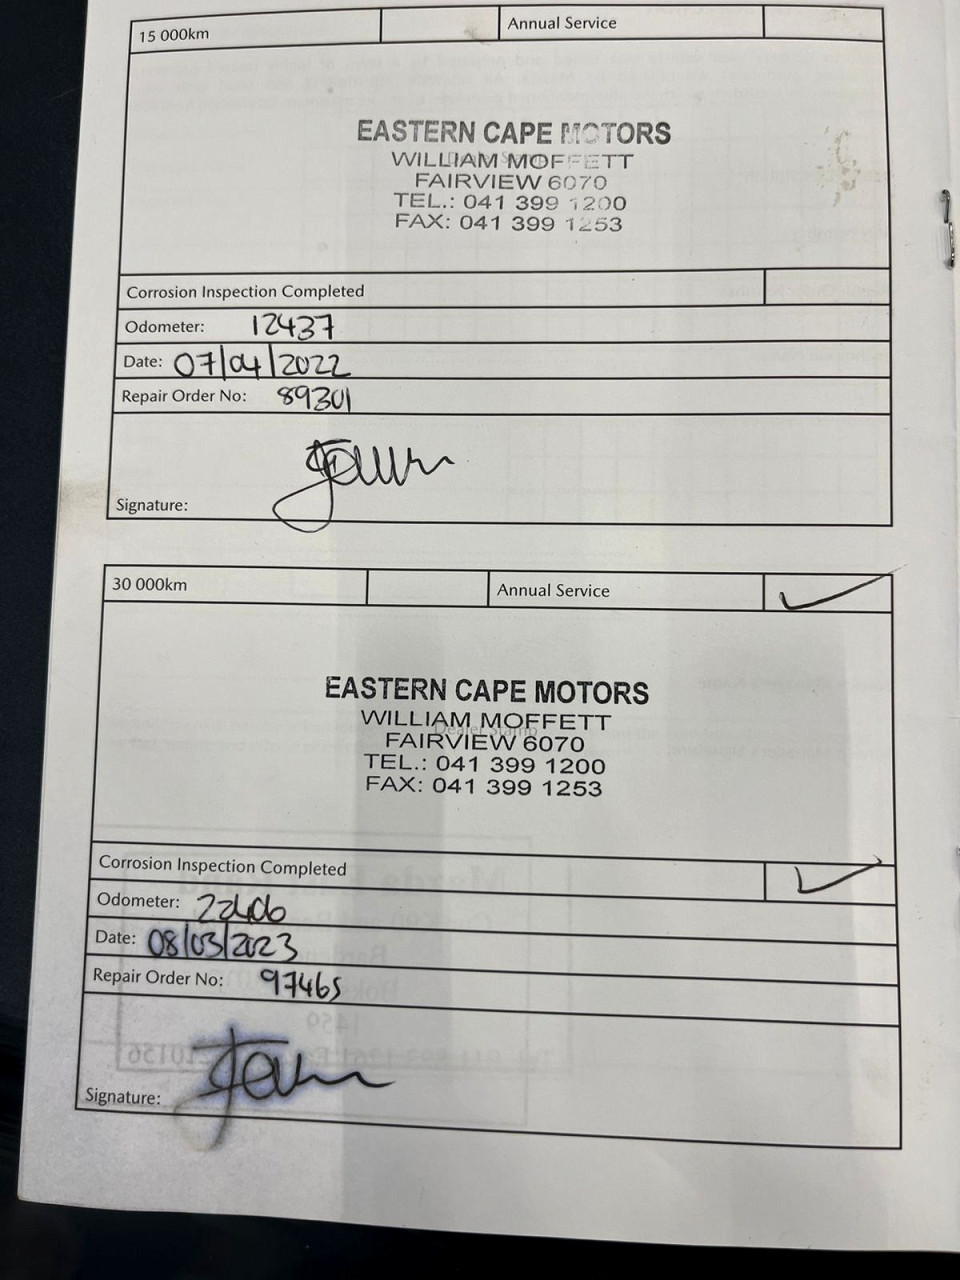 15 000km Annual Service
EASTERN CAPE MOTORS
WILLIAM MOFFETT
FAIRVIEW 6070
TEL.: 041 399 1200
FAX: 041 399 1253
Corrosion Inspection Completed
Odometer: 12437
Date: 07/04/2022
Repair Order No: 89301
Signature:
30 000km Annual Service
EASTERN CAPE MOTORS
WILLIAM MOFFETT
Dealer Stamp
FAIRVIEW 6070
TEL.: 041 399 1200
FAX: 041 399 1253
Corrosion Inspection Completed
Odometer:
Date: 08/03/2023
Repair Order No: 97465
Signature: